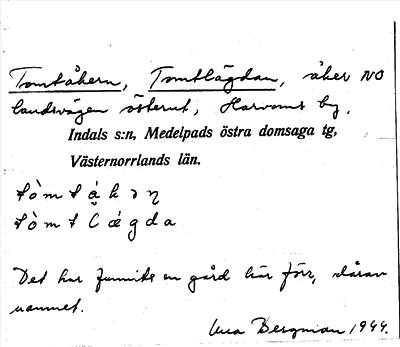 Tomtåkern, Tomtlägdan, åker NO
landsvägen österut, Harvoms by,
Indals s:n, Medelpads östra domsaga tg,
Västernorrlands län.
tòmtákəη
tòmtlágda
Det har funnits en gård här förr, därav
namnet.
Bergman 1944.